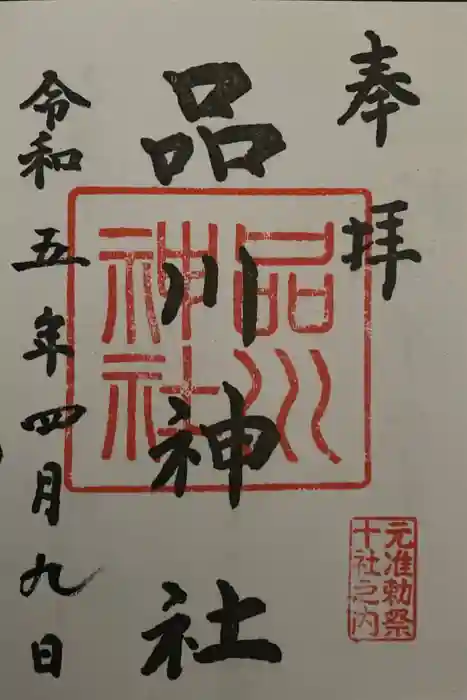 奉拝
元准勅祭
十社之内
品川神社
品川
神社
令和五年四月九日